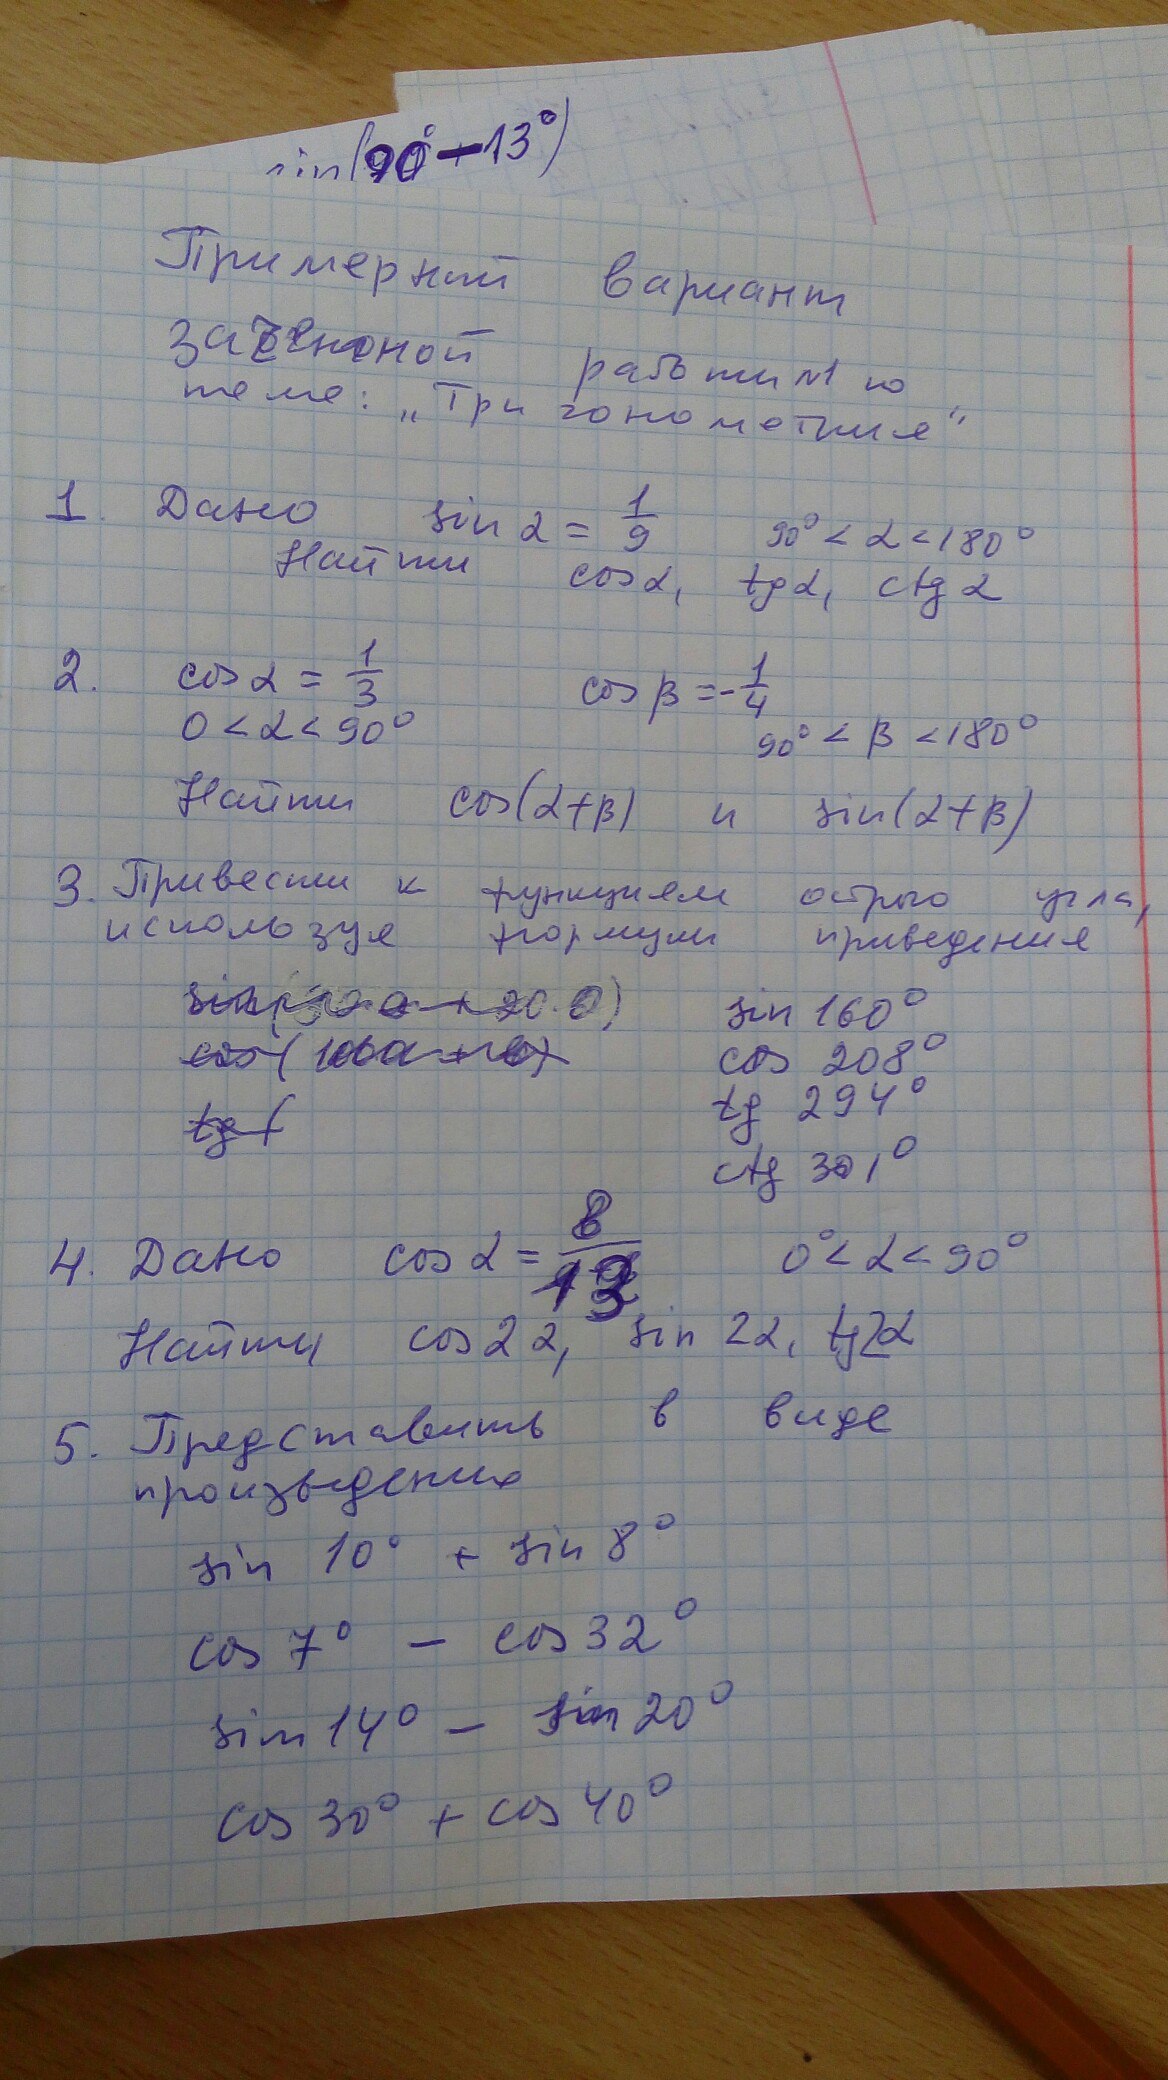 sin(90°-13°)
Примерный вариант
зачетной работы №1 по
теме: „Тригонометрия“
1. Дано sin α = 1/9 90° < α < 180°
Найти cos α, tg α, ctg α
2. cos α = 1/3 cos β = -1/4
0 < α < 90° 90° < β < 180°
Найти cos(α+β) и sin(α+β)
3. Привести к функциям острого угла,
используя формулы приведения
sin 160°
cos 208°
tg 294°
ctg 301°
4. Дано cos α = 8/13 0° < α < 90°
Найти cos 2α, sin 2α, tg 2α
5. Представить в виде
произведения
sin 10° + sin 8°
cos 7° - cos 32°
sin 14° - sin 20°
cos 30° + cos 40°